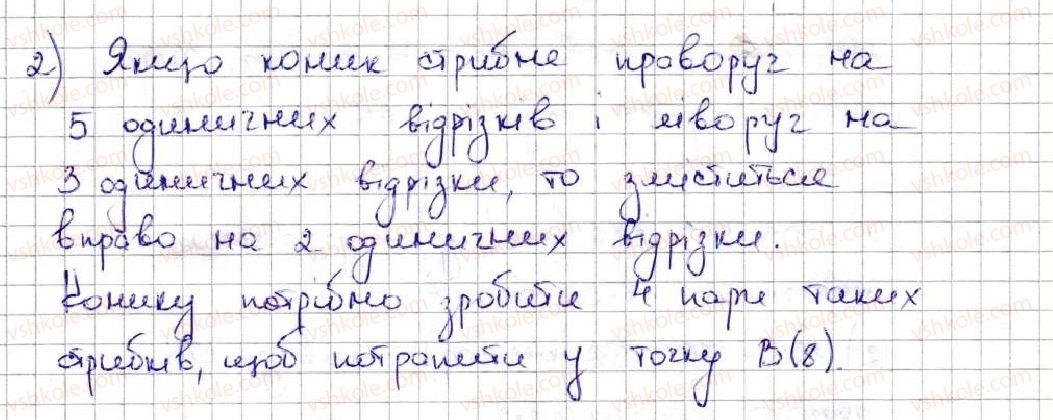 2) Якщо коник стрибне праворуч на
5 одиничних відрізків і ліворуч на
3 одиничних відрізки, то зміститься
вправо на 2 одиничних відрізки.
Конику потрібно зробити 4 пари таких
стрибків, щоб потрапити у точку B(8).